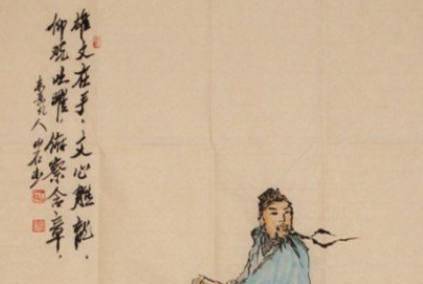 雄文在手，文心雕龍，
仰观吐曜，俯察含章，
人